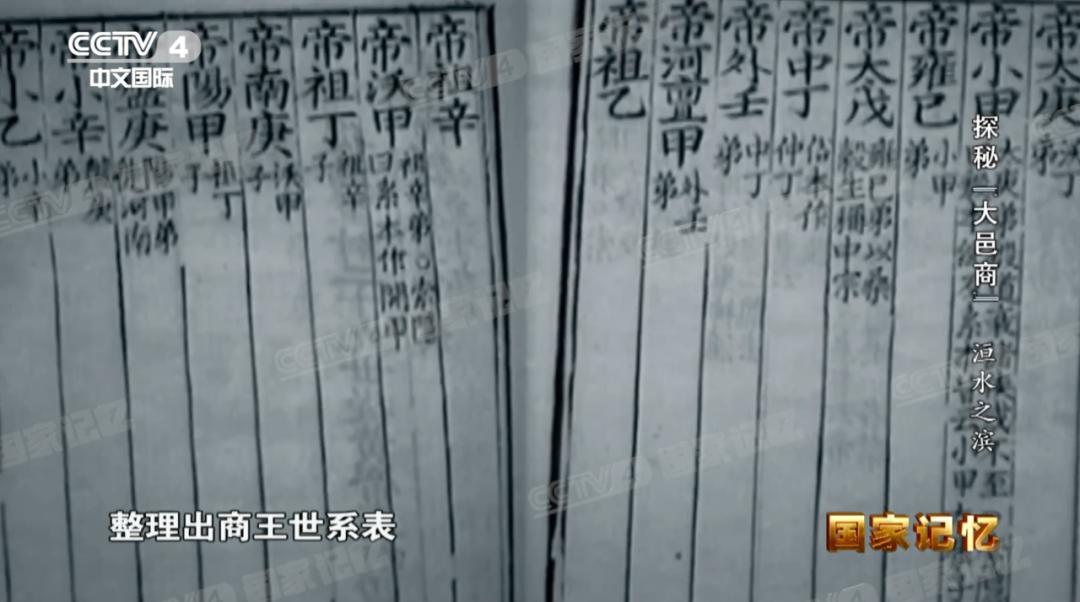 CCTV 4
中文国际
帝太庚
沃丁
弟
帝小甲
帝雍己
小甲
弟
帝太戊
雍己弟以桑
穀生稱中宗
帝中丁
伯本作
仲丁
帝外壬
中丁
弟
帝河亶甲
外壬
弟
帝祖乙
帝祖辛
帝沃甲
祖辛弟○索隱
曰系本作開甲
帝祖丁
祖辛
子
帝南庚
沃甲
子
帝陽甲
祖丁
子
盤庚
陽甲弟
徙河南
帝小辛
盤庚
弟
帝小乙
小辛
弟
探秘「大邑商」 洹水之滨
整理出商王世系表
国家记忆